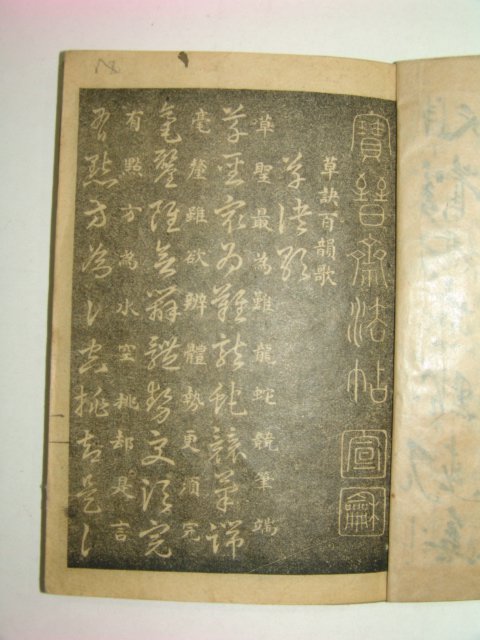 寶晉齋法帖
宣龢
草訣百韻歌
草訣歌
草聖最為難龍蛇競筆端
草聖最為難龍蛇競筆端
毫釐雖欲辨體勢更須完
毫釐雖欲辨體勢更須完
有點方為水空挑却是言
有點方為水空挑却是言